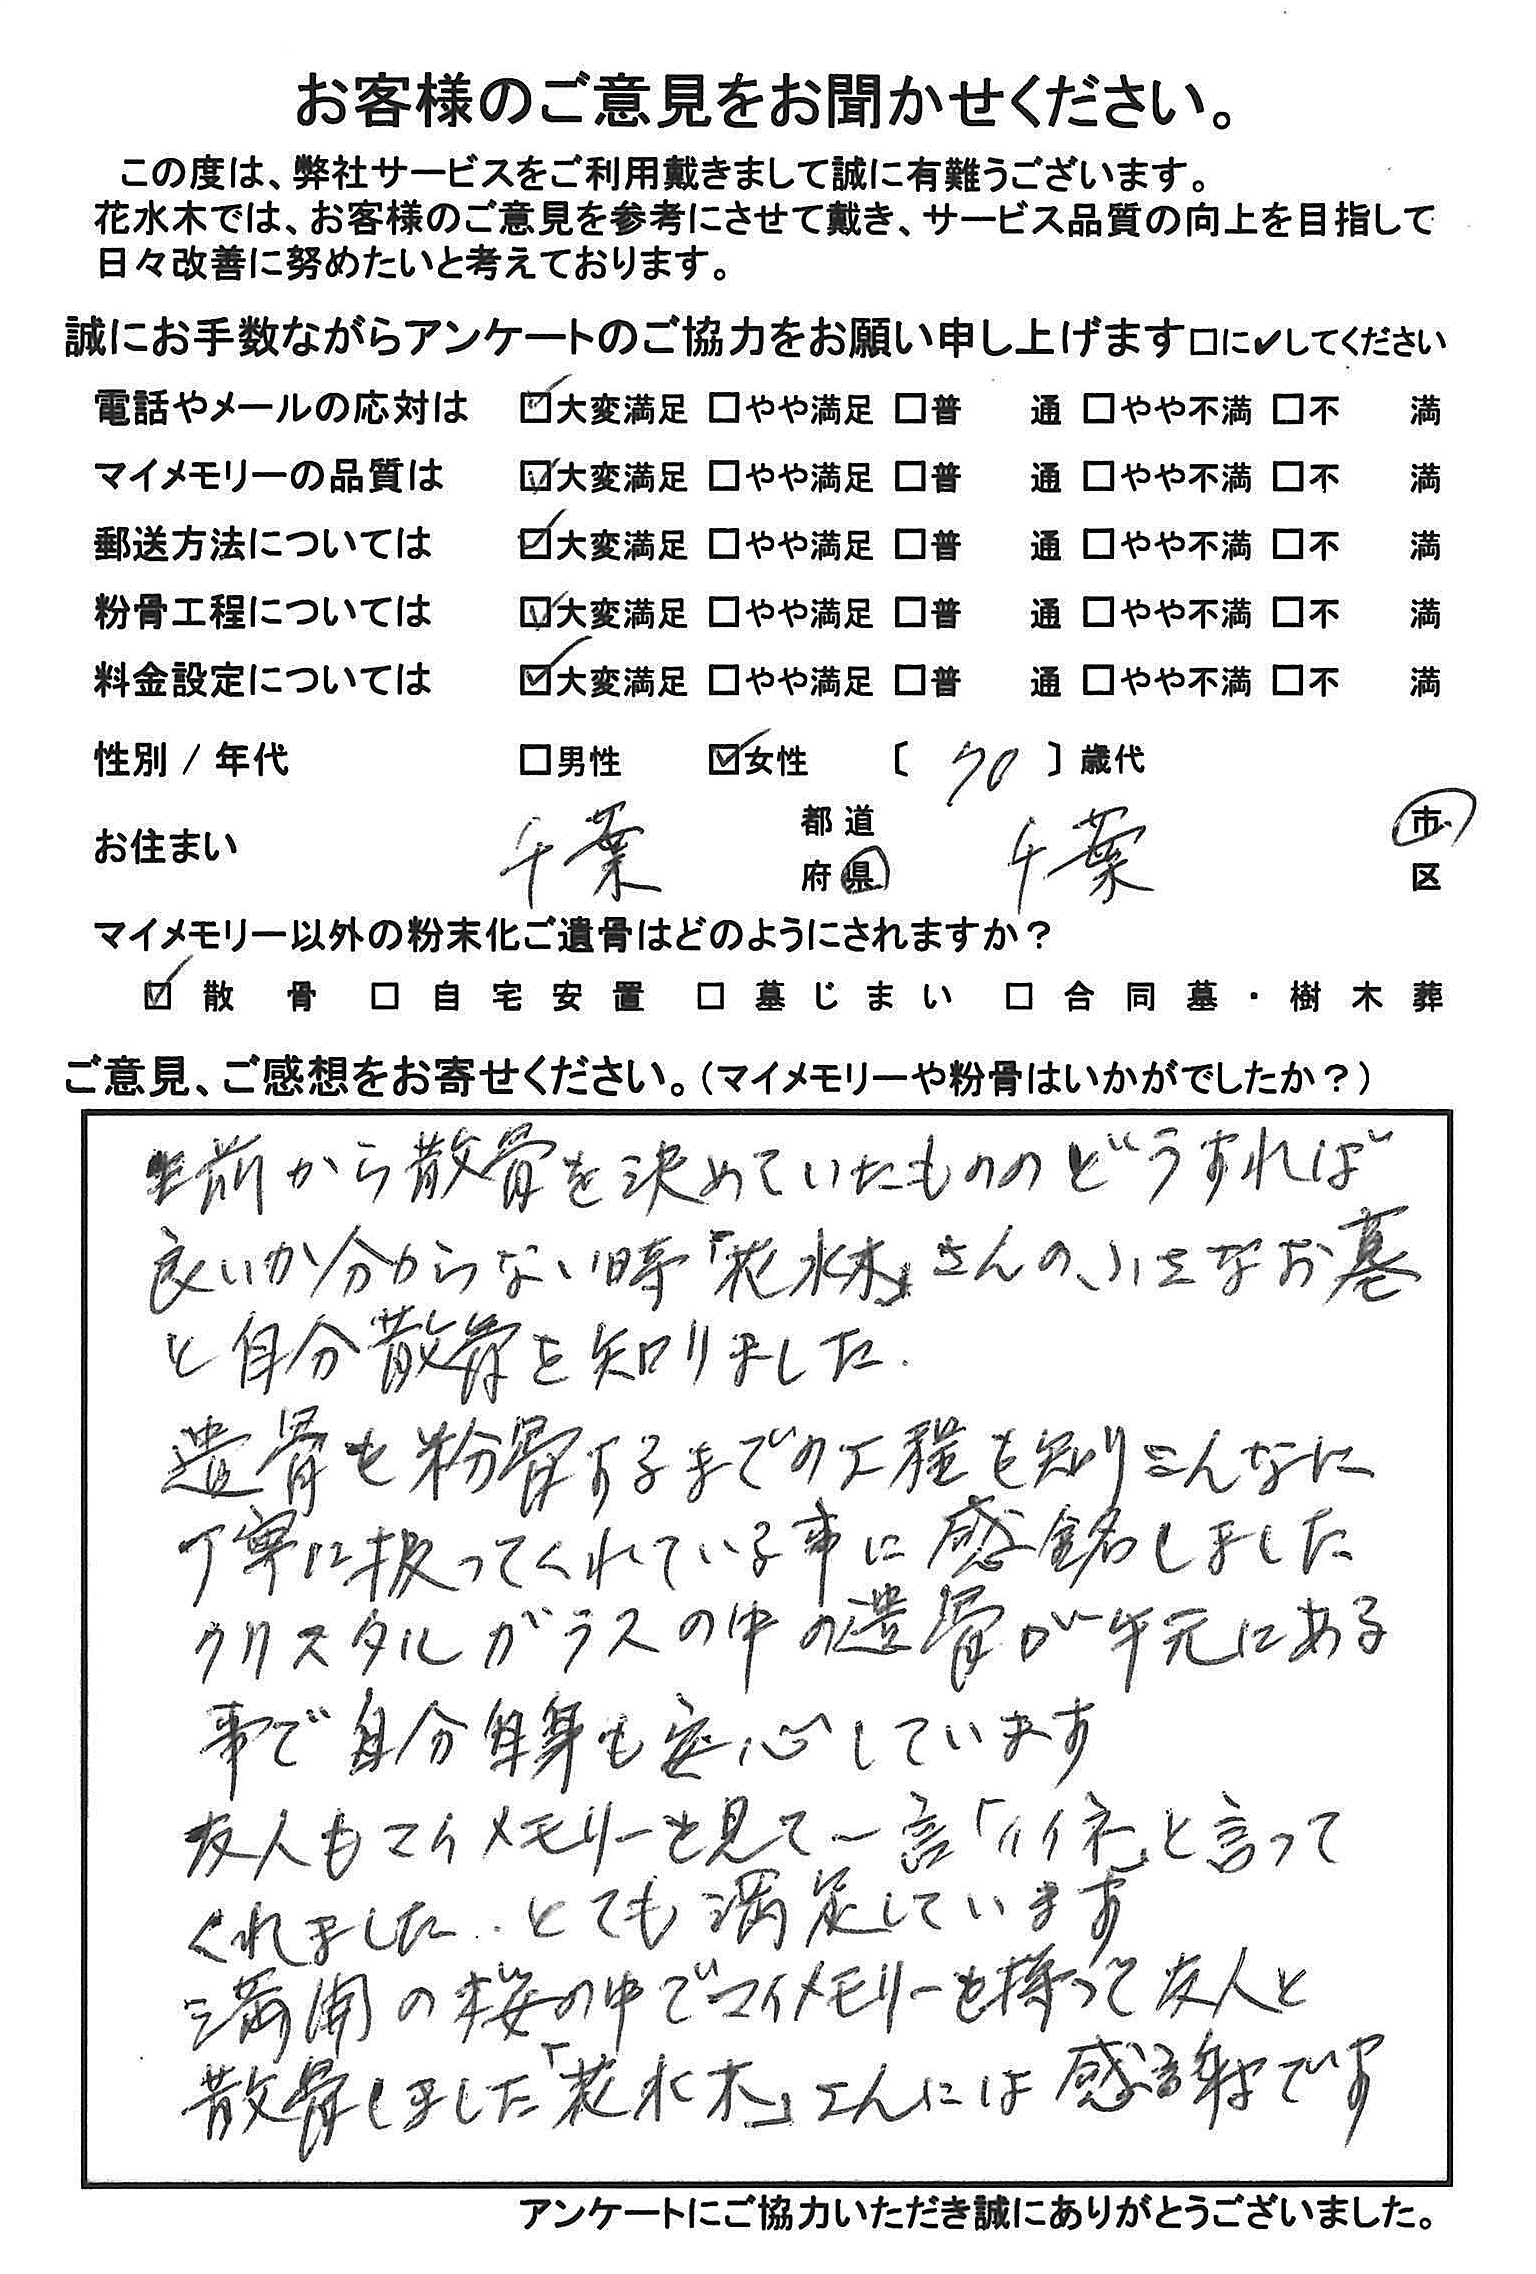 お客様のご意見をお聞かせください。
この度は、弊社サービスをご利用戴きまして誠に有難うございます。
花水木では、お客様のご意見を参考にさせて戴き、サービス品質の向上を目指して
日々改善に努めたいと考えております。
誠にお手数ながらアンケートのご協力をお願い申し上げます□に✔してください
電話やメールの応対は ☑大変満足 □やや満足 □普 通 □やや不満 □不 満
マイメモリーの品質は ☑大変満足 □やや満足 □普 通 □やや不満 □不 満
郵送方法については ☑大変満足 □やや満足 □普 通 □やや不満 □不 満
粉骨工程については ☑大変満足 □やや満足 □普 通 □やや不満 □不 満
料金設定については ☑大変満足 □やや満足 □普 通 □やや不満 □不 満
性別 / 年代 □男性 ☑女性 〔 70 〕歳代
お住まい 千葉 都道府県 千葉 市区
マイメモリー以外の粉末化ご遺骨はどのようにされますか？
☑ 散骨 □ 自宅安置 □ 墓じまい □ 合同墓・樹木葬
ご意見、ご感想をお寄せください。（マイメモリーや粉骨はいかがでしたか？）
生前から散骨を決めていたもののどうすれば
良いか分からない時「花水木」さんの小さなお墓
と自分散骨を知りました.
遺骨を粉骨するまでの工程も知りこんなに
丁寧に扱ってくれている事に感銘しました
クリスタルガラスの中の遺骨が手元にある
事で自分自身も安心しています
友人もマイメモリーを見て一言「イイネ」と言って
くれました. とても満足しています
満開の桜の中でマイメモリーを持って友人と
散骨しました「花水木」さんには感謝です
アンケートにご協力いただき誠にありがとうございました。